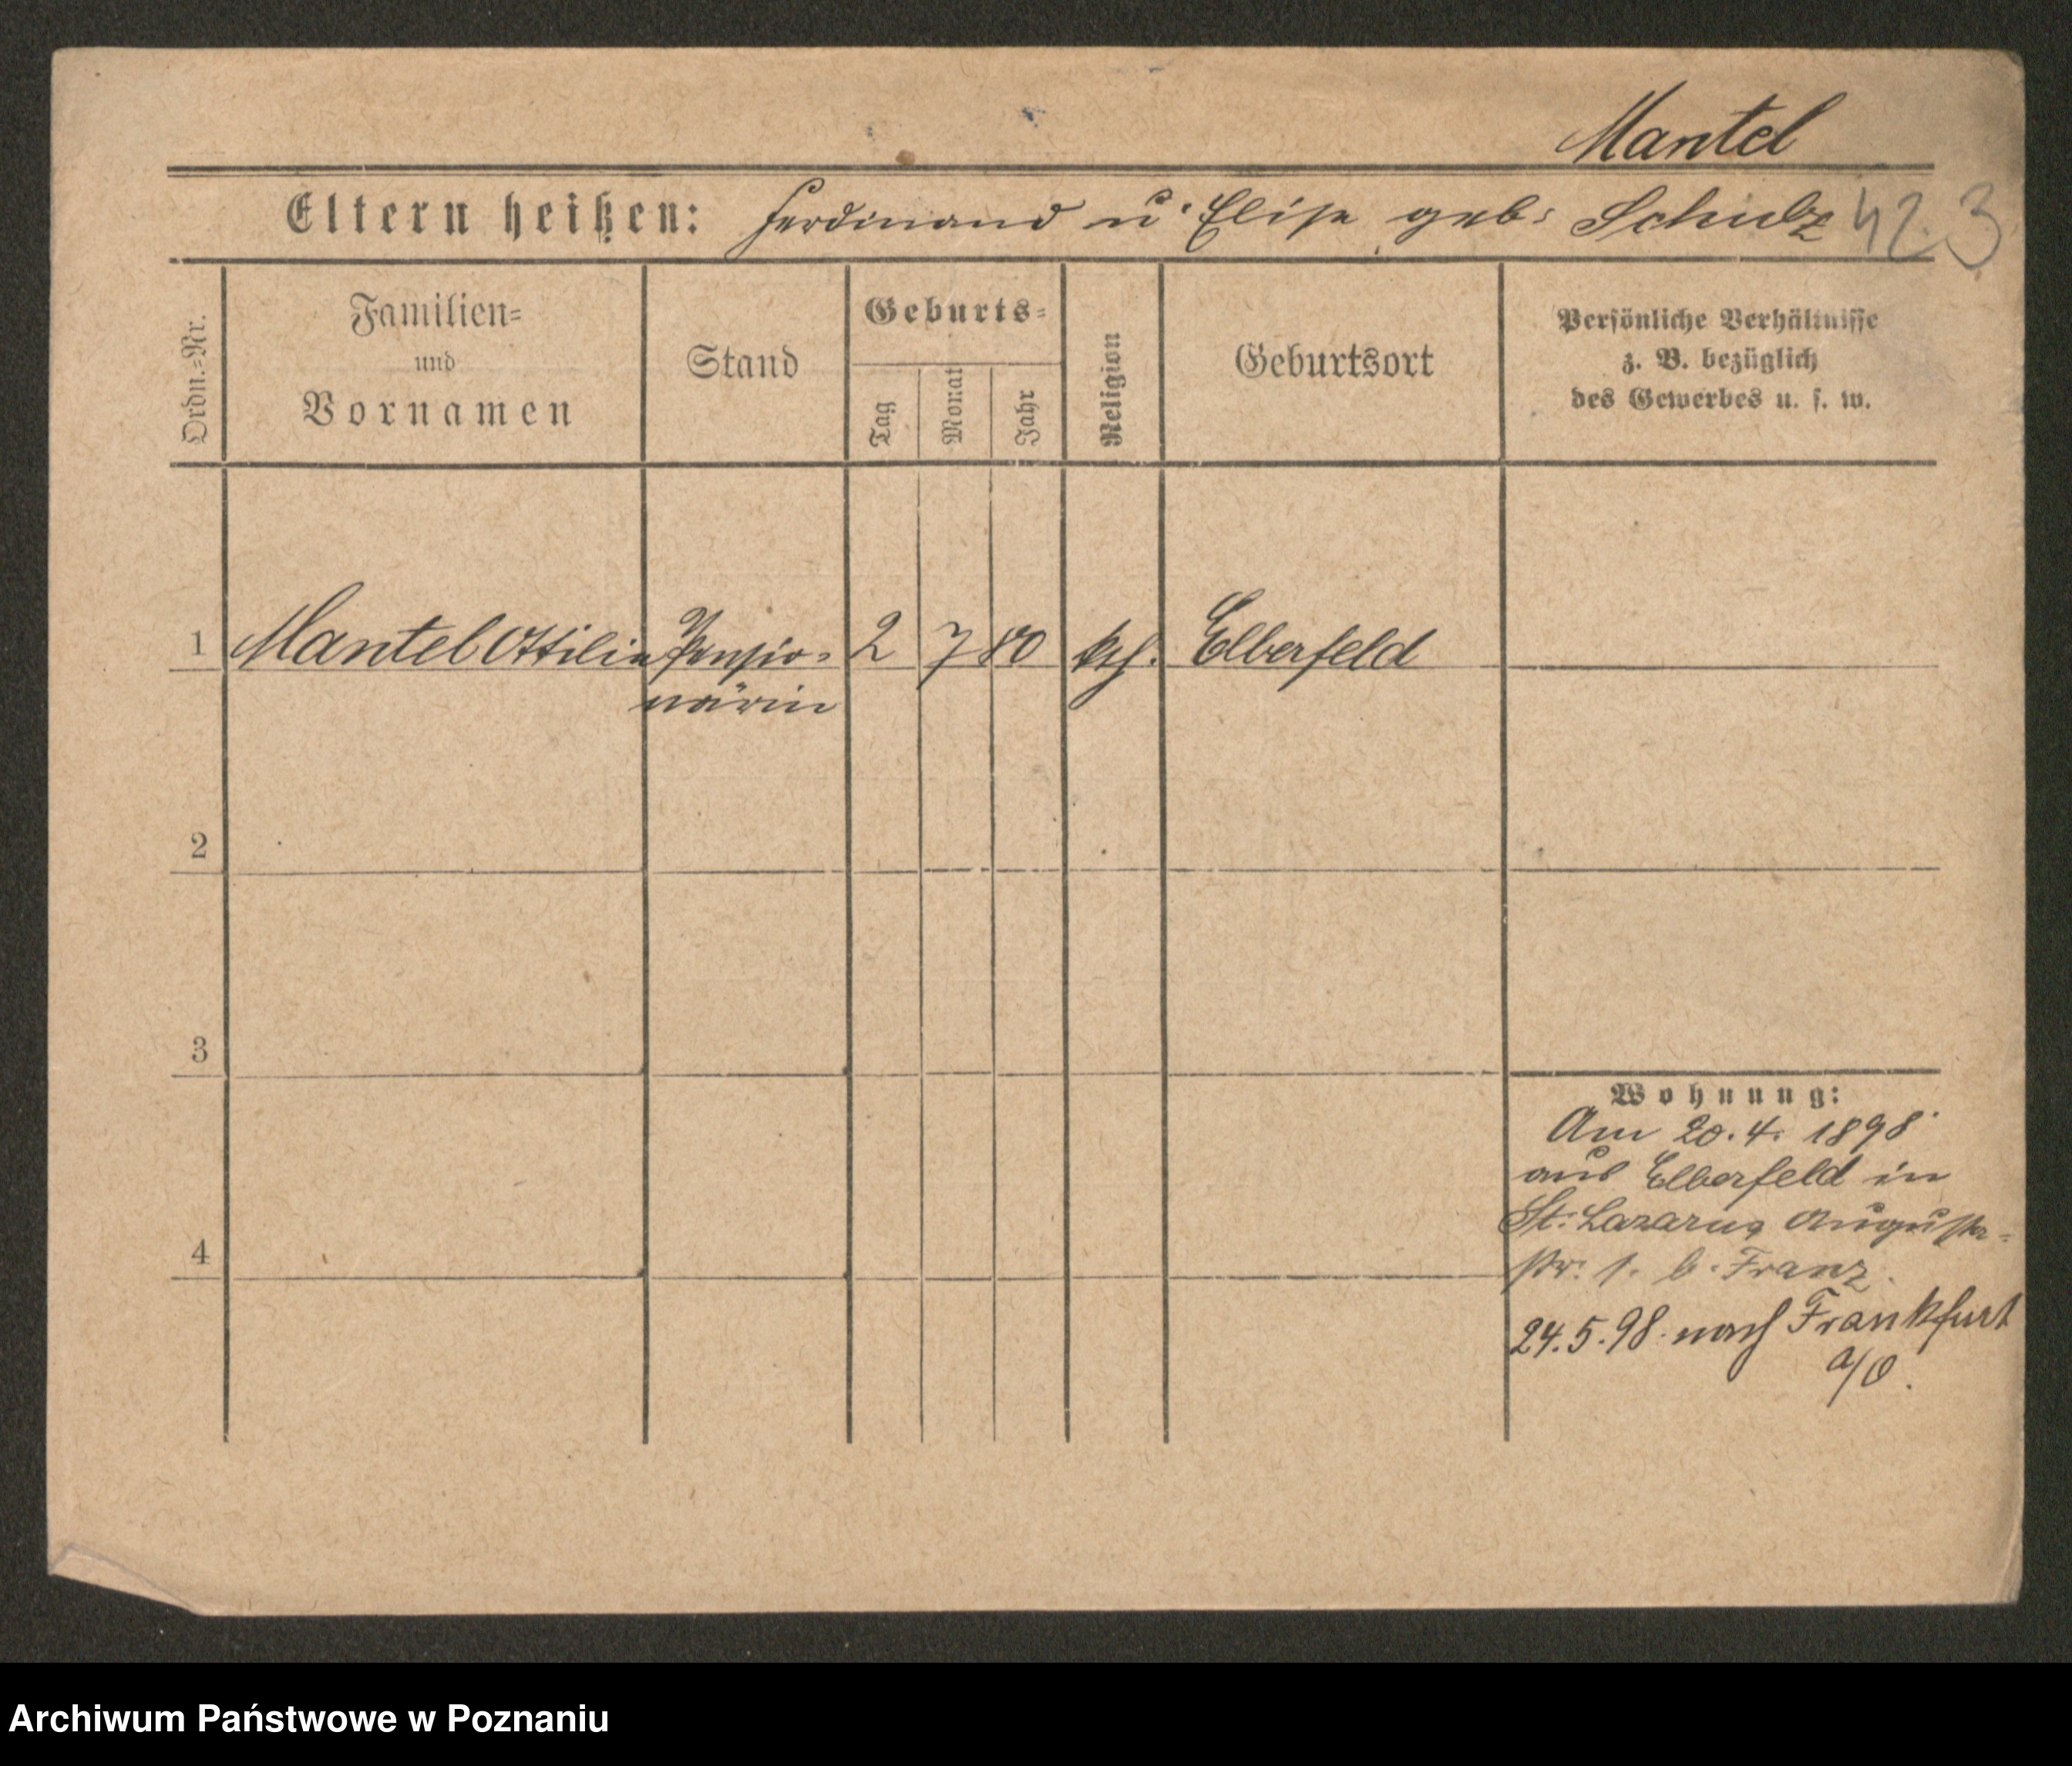 Mantel
Eltern heißen: Ferdinand u. Elise geb. Schulz 423
Ordn.=Nr.
Familien=
und
Vornamen
Stand
Geburts=
Tag
Monat
Jahr
Religion
Geburtsort
Persönliche Verhältnisse
z. B. bezüglich
des Gewerbes u. s. w.
1 Mantel Ottilie Pensio= 2 7 80 kth. Elberfeld
närin
2
3
Wohnung:
Am 20.4. 1898
aus Elberfeld in
St. Lazarus Augusta=
4
str. 1. b. Franz.
24.5.98. nach Frankfurt
a/O.
Archiwum Państwowe w Poznaniu